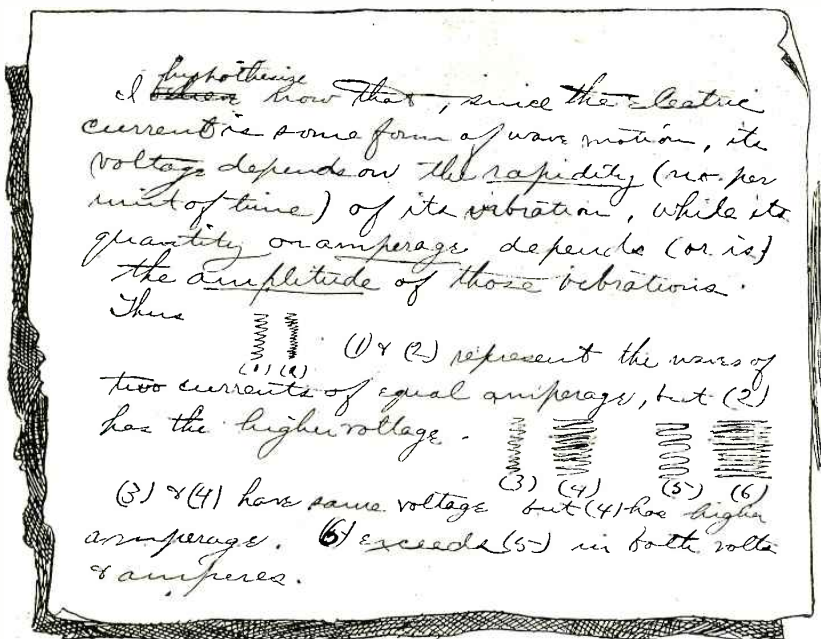 hypothesize
I now that, since the electric
current is some form of wave motion, its
voltage depends on the rapidity (no. per
unit of time) of its vibration, while its
quantity or amperage depends (or is)
the amplitude of those vibrations.
Thus
(1) & (2) represent the waves of
(1) (2)
two currents of equal amperage, but (2)
has the higher voltage.
(3) (4) (5) (6)
(3) & (4) have same voltage but (4) has higher
amperage. (6) exceeds (5) in both volts
& amperes.